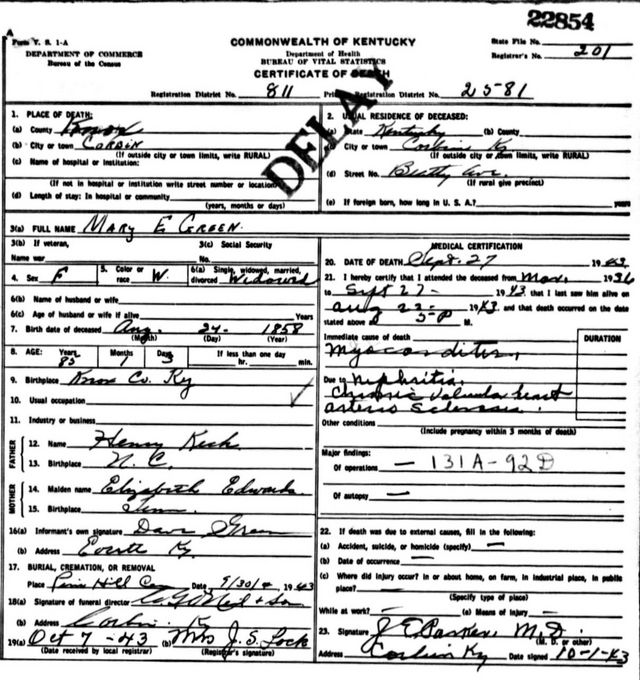 22854
A
Form V. S. 1-A
DEPARTMENT OF COMMERCE
Bureau of the Census
COMMONWEALTH OF KENTUCKY
Department of Health
BUREAU OF VITAL STATISTICS
CERTIFICATE OF DEATH
DELAY
State File No.
Registrar's No. 201
Registration District No. 811
2581
1. PLACE OF DEATH:
(a) County Knox
(b) City or town CORBIN
(If outside city or town limits, write RURAL)
(c) Name of hospital or institution:
(If not in hospital or institution write street number or location)
(d) Length of stay: In hospital or community
(years, months or days)
2. USUAL RESIDENCE OF DECEASED:
(a) State Kentucky (b) County
(c) City or town Corbin Ky
(If outside city or town limits, write RURAL)
(d) Street No. Ave.
(If rural give precinct)
(e) If foreign born, how long in U. S. A.?
3(a) FULL NAME MARY E GREEN
3(b) If veteran,
Name war
3(c) Social Security
No.
4. Sex F
5. Color or race W.
6(a) Single, widowed, married, divorced Widowed
6(b) Name of husband or wife
6(c) Age of husband or wife if alive Years
7. Birth date of deceased Aug. 24 - 1858
(Month) (Day) (Year)
8. AGE: Years 85 Months 1 Days 3 If less than one day
hr. min.
9. Birthplace Knox Co. Ky
10. Usual occupation
11. Industry or business
FATHER
12. Name Henry Keck
13. Birthplace N. C.
MOTHER
14. Maiden name Elizabeth Edwards
15. Birthplace Tenn
16(a) Informant's own signature Dave Green
(b) Address Ky.
17. BURIAL, CREMATION, OR REMOVAL
Place Pine Hill Cem Date 9/30/4 1943
18(a) Signature of funeral director & Son
(b) Address Corbin Ky
19(a) Oct 7 - 43 (b) Mrs J. S. Lock
(Date received by local registrar) (Registrar's signature)
MEDICAL CERTIFICATION
20. DATE OF DEATH Sept. 27 1943
21. I hereby certify that I attended the deceased from Mar. 1936
to Sept 27 - 1943 that I last saw him alive on
Aug 22 - 1943 and that death occurred on the date
stated above at 5 P M.
Immediate cause of death
DURATION
Myocarditis,
Due to Nephritis,
Chronic Valvular heart
arterio Sclerosis.
Other conditions
(Include pregnancy within 3 months of death)
Major findings:
Of operations — 131A-92D
Of autopsy —
22. If death was due to external causes, fill in the following:
(a) Accident, suicide, or homicide (specify) —
(b) Date of occurrence —
(c) Where did injury occur? In or about home, on farm, in industrial place, in public
place? —
(Specify type of place)
While at work? — (e) Means of injury —
23. Signature J E Parker, M.D.
(M. D. or other)
Address Corbin Ky Date signed 10-1-43